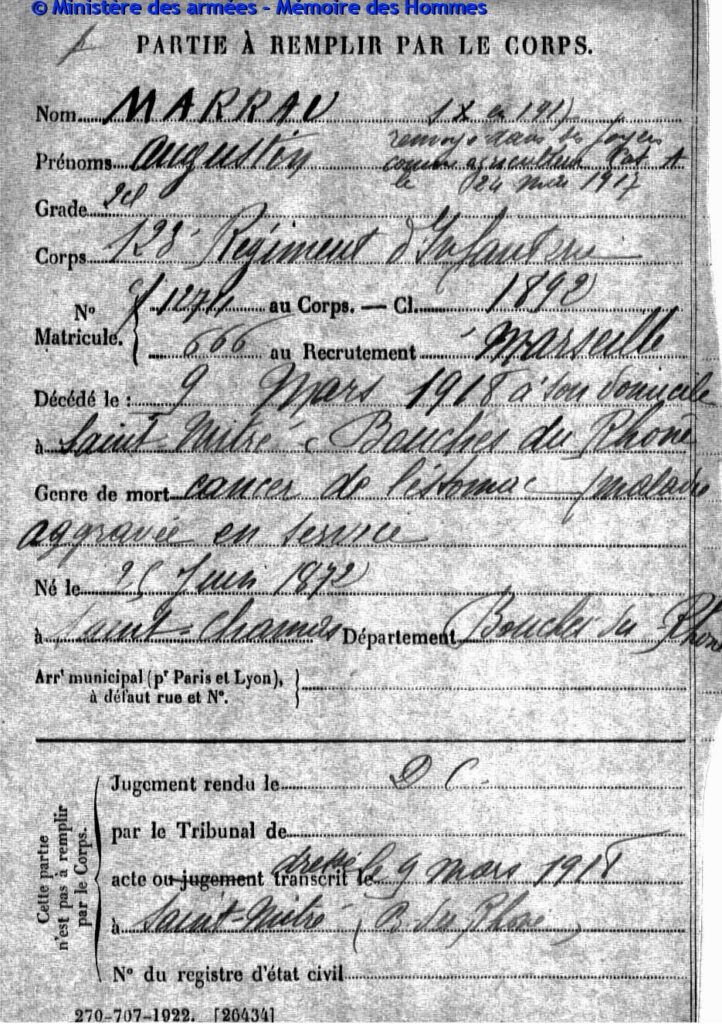 © Ministère des armées - Mémoire des Hommes
PARTIE À REMPLIR PAR LE CORPS.
Nom MARRAU
en 1917
renvoyé dans ses foyers
Prénoms Augustin
comme agriculteur Cat. A
le 24 mai 1917
Grade 2e
Corps 128e Régiment d'Infanterie
No Matricule. 1274 au Corps. — Cl. 1892
666 au Recrutement Marseille
Décédé le : 9 Mars 1918 à son domicile
à Saint-Mitre Bouches du Rhône
Genre de mort cancer de l'estomac (maladie
aggravée en service
Né le 25 Juin 1872
à Saint-Chamas Département Bouches du Rhône
Arrt municipal (pr Paris et Lyon),
à défaut rue et No.
Cette partie
n'est pas à remplir
par le Corps.
Jugement rendu le D C.
par le Tribunal de
acte ou jugement transcrit dressé le 9 mars 1918
à Saint-Mitre (B. du Rhône)
No du registre d'état civil
270-707-1922. [26434]